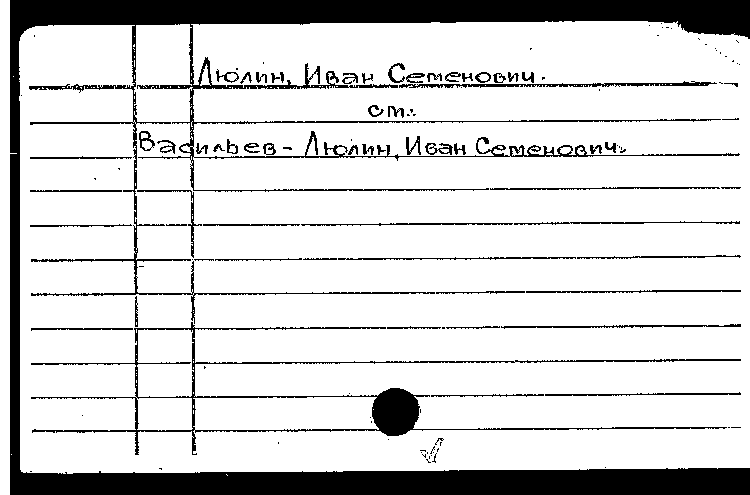 Люлин, Иван Семенович.
ст.:
Васильев - Люлин, Иван Семенович.